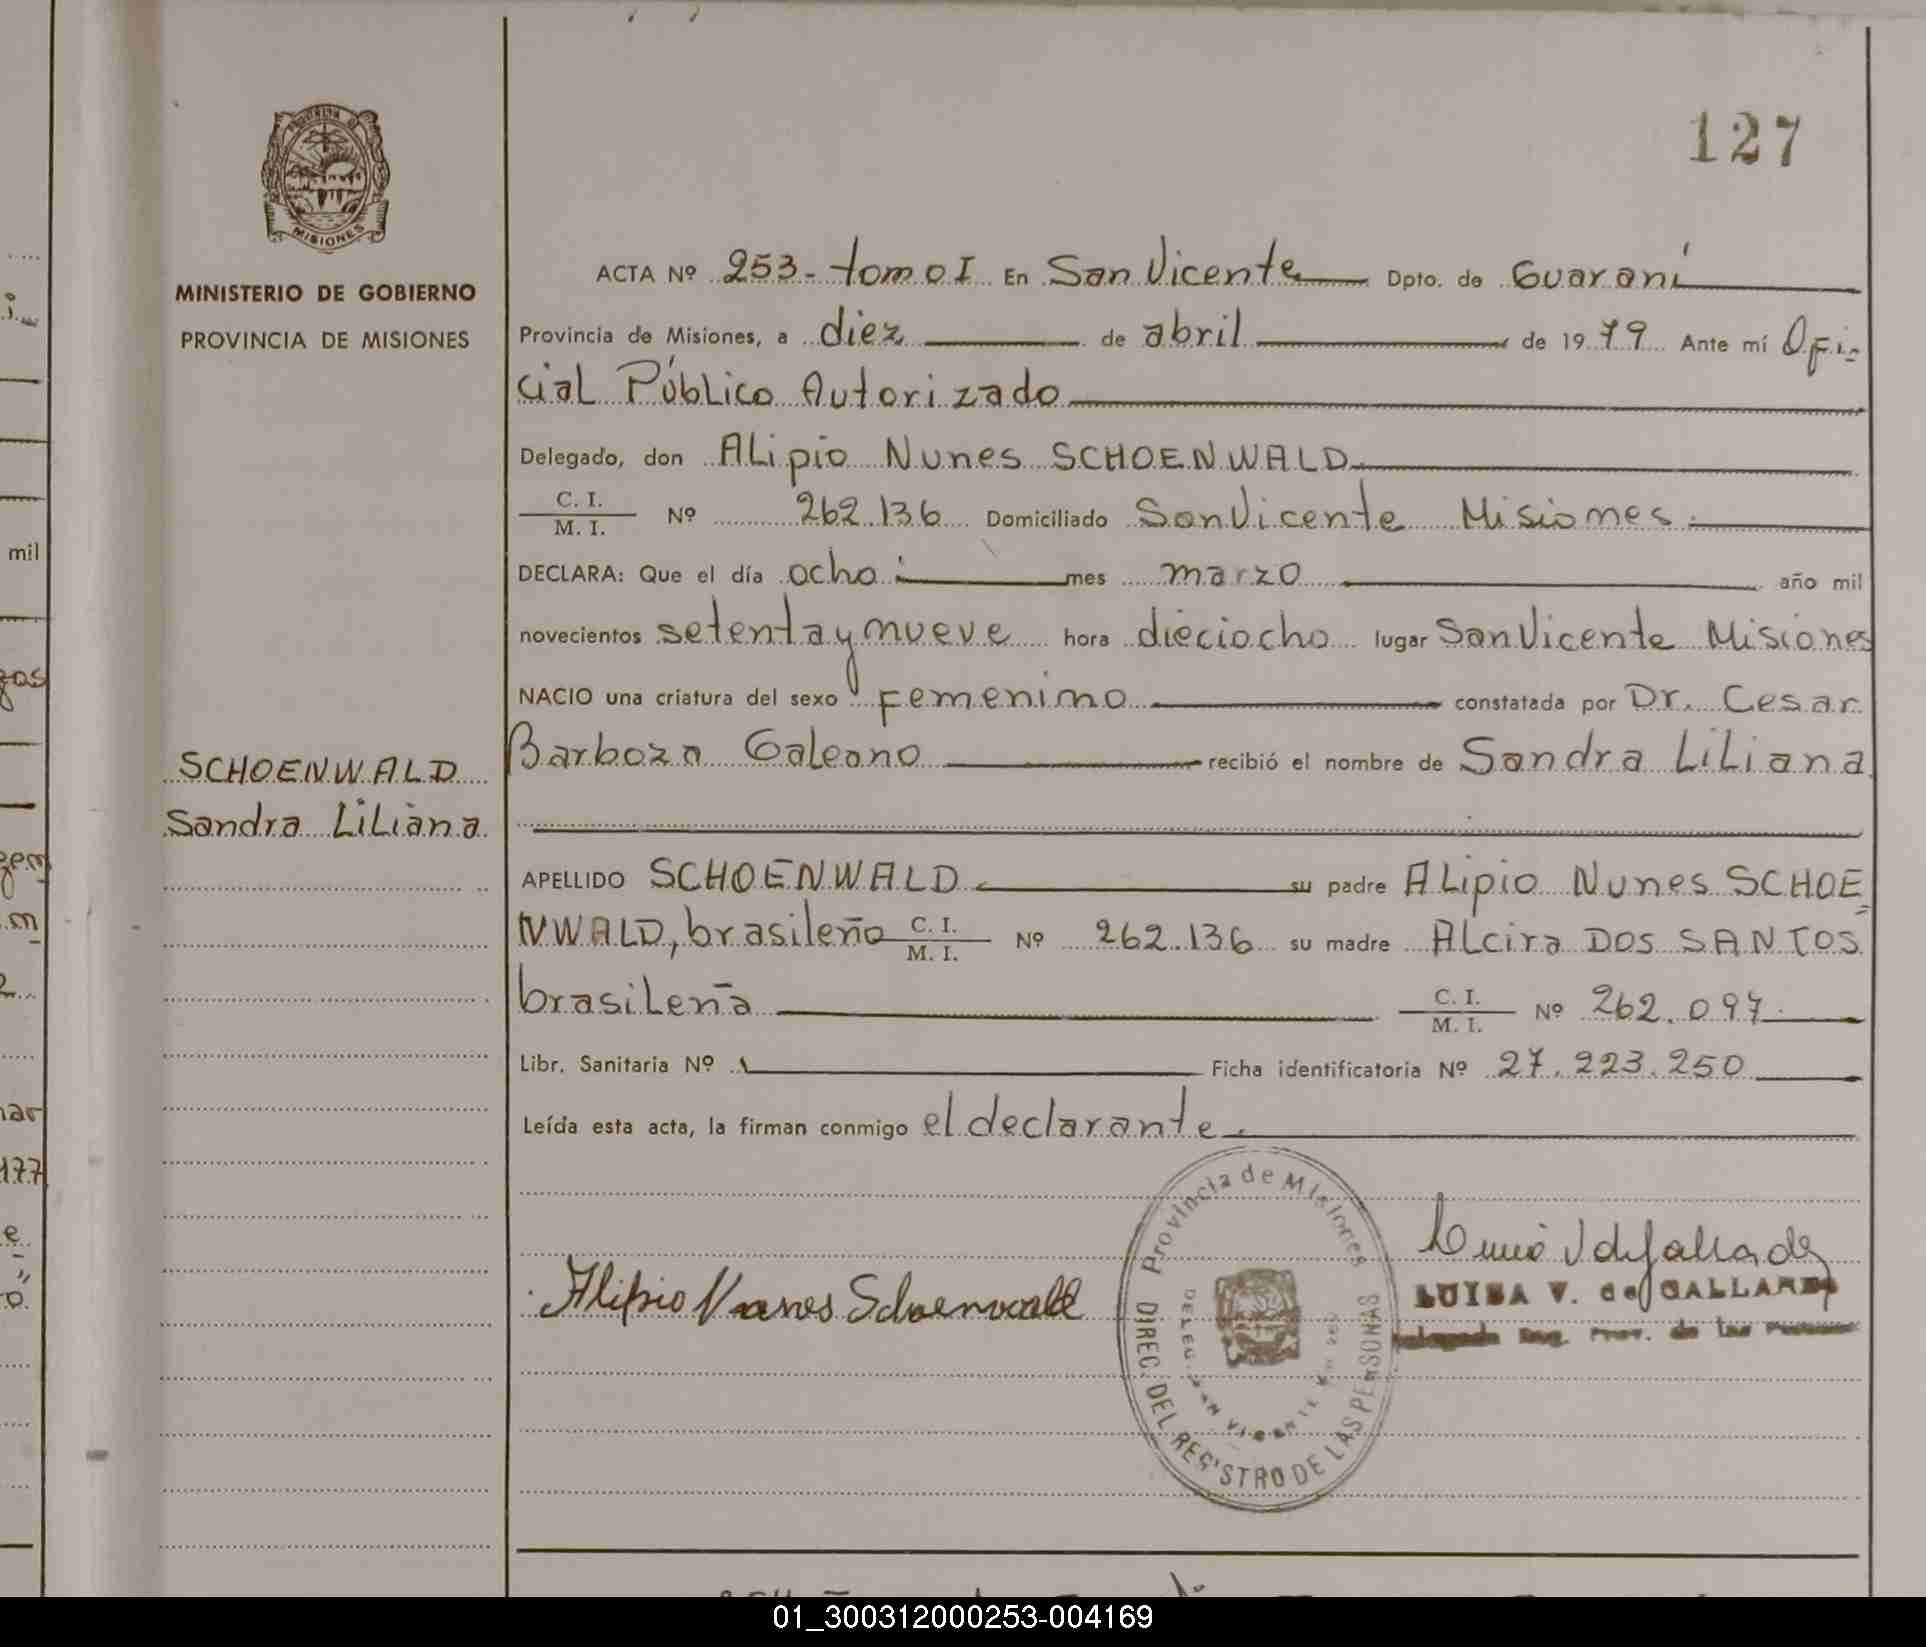 127
PROVINCIA DE
MISIONES
MINISTERIO DE GOBIERNO
PROVINCIA DE MISIONES
SCHOENWALD
Sandra Liliana
ACTA Nº 253- tomo I En San Vicente Dpto. de Guaraní
Provincia de Misiones, a diez de abril de 1979 Ante mí Ofi-
cial Público Autorizado
Delegado, don Alipio Nunes SCHOENWALD
C. I.
M. I. Nº 262.136 Domiciliado San Vicente Misiones.
DECLARA: Que el día ocho mes marzo año mil
novecientos setenta y nueve hora dieciocho lugar San Vicente Misiones
NACIO una criatura del sexo femenino constatada por Dr. Cesar
Barboza Galeano recibió el nombre de Sandra Liliana
APELLIDO SCHOENWALD su padre Alipio Nunes SCHOE=
NWALD, brasileño C. I.
M. I. Nº 262.136 su madre Alcira DOS SANTOS
brasileña C. I.
M. I. Nº 262.097.
Libr. Sanitaria Nº Ficha identificatoria Nº 27.223.250
Leída esta acta, la firman conmigo el declarante.
Provincia de Misiones
DIREC. DEL REGISTRO DE LAS PERSONAS
DELEG. SAN VICENTE
Alipio Nunes Schoenwald
LUISA V. de GALLARDO
Delegada Reg. Prov. de las Personas
mil
gas
gen
m
nar
177
e
01_300312000253-004169